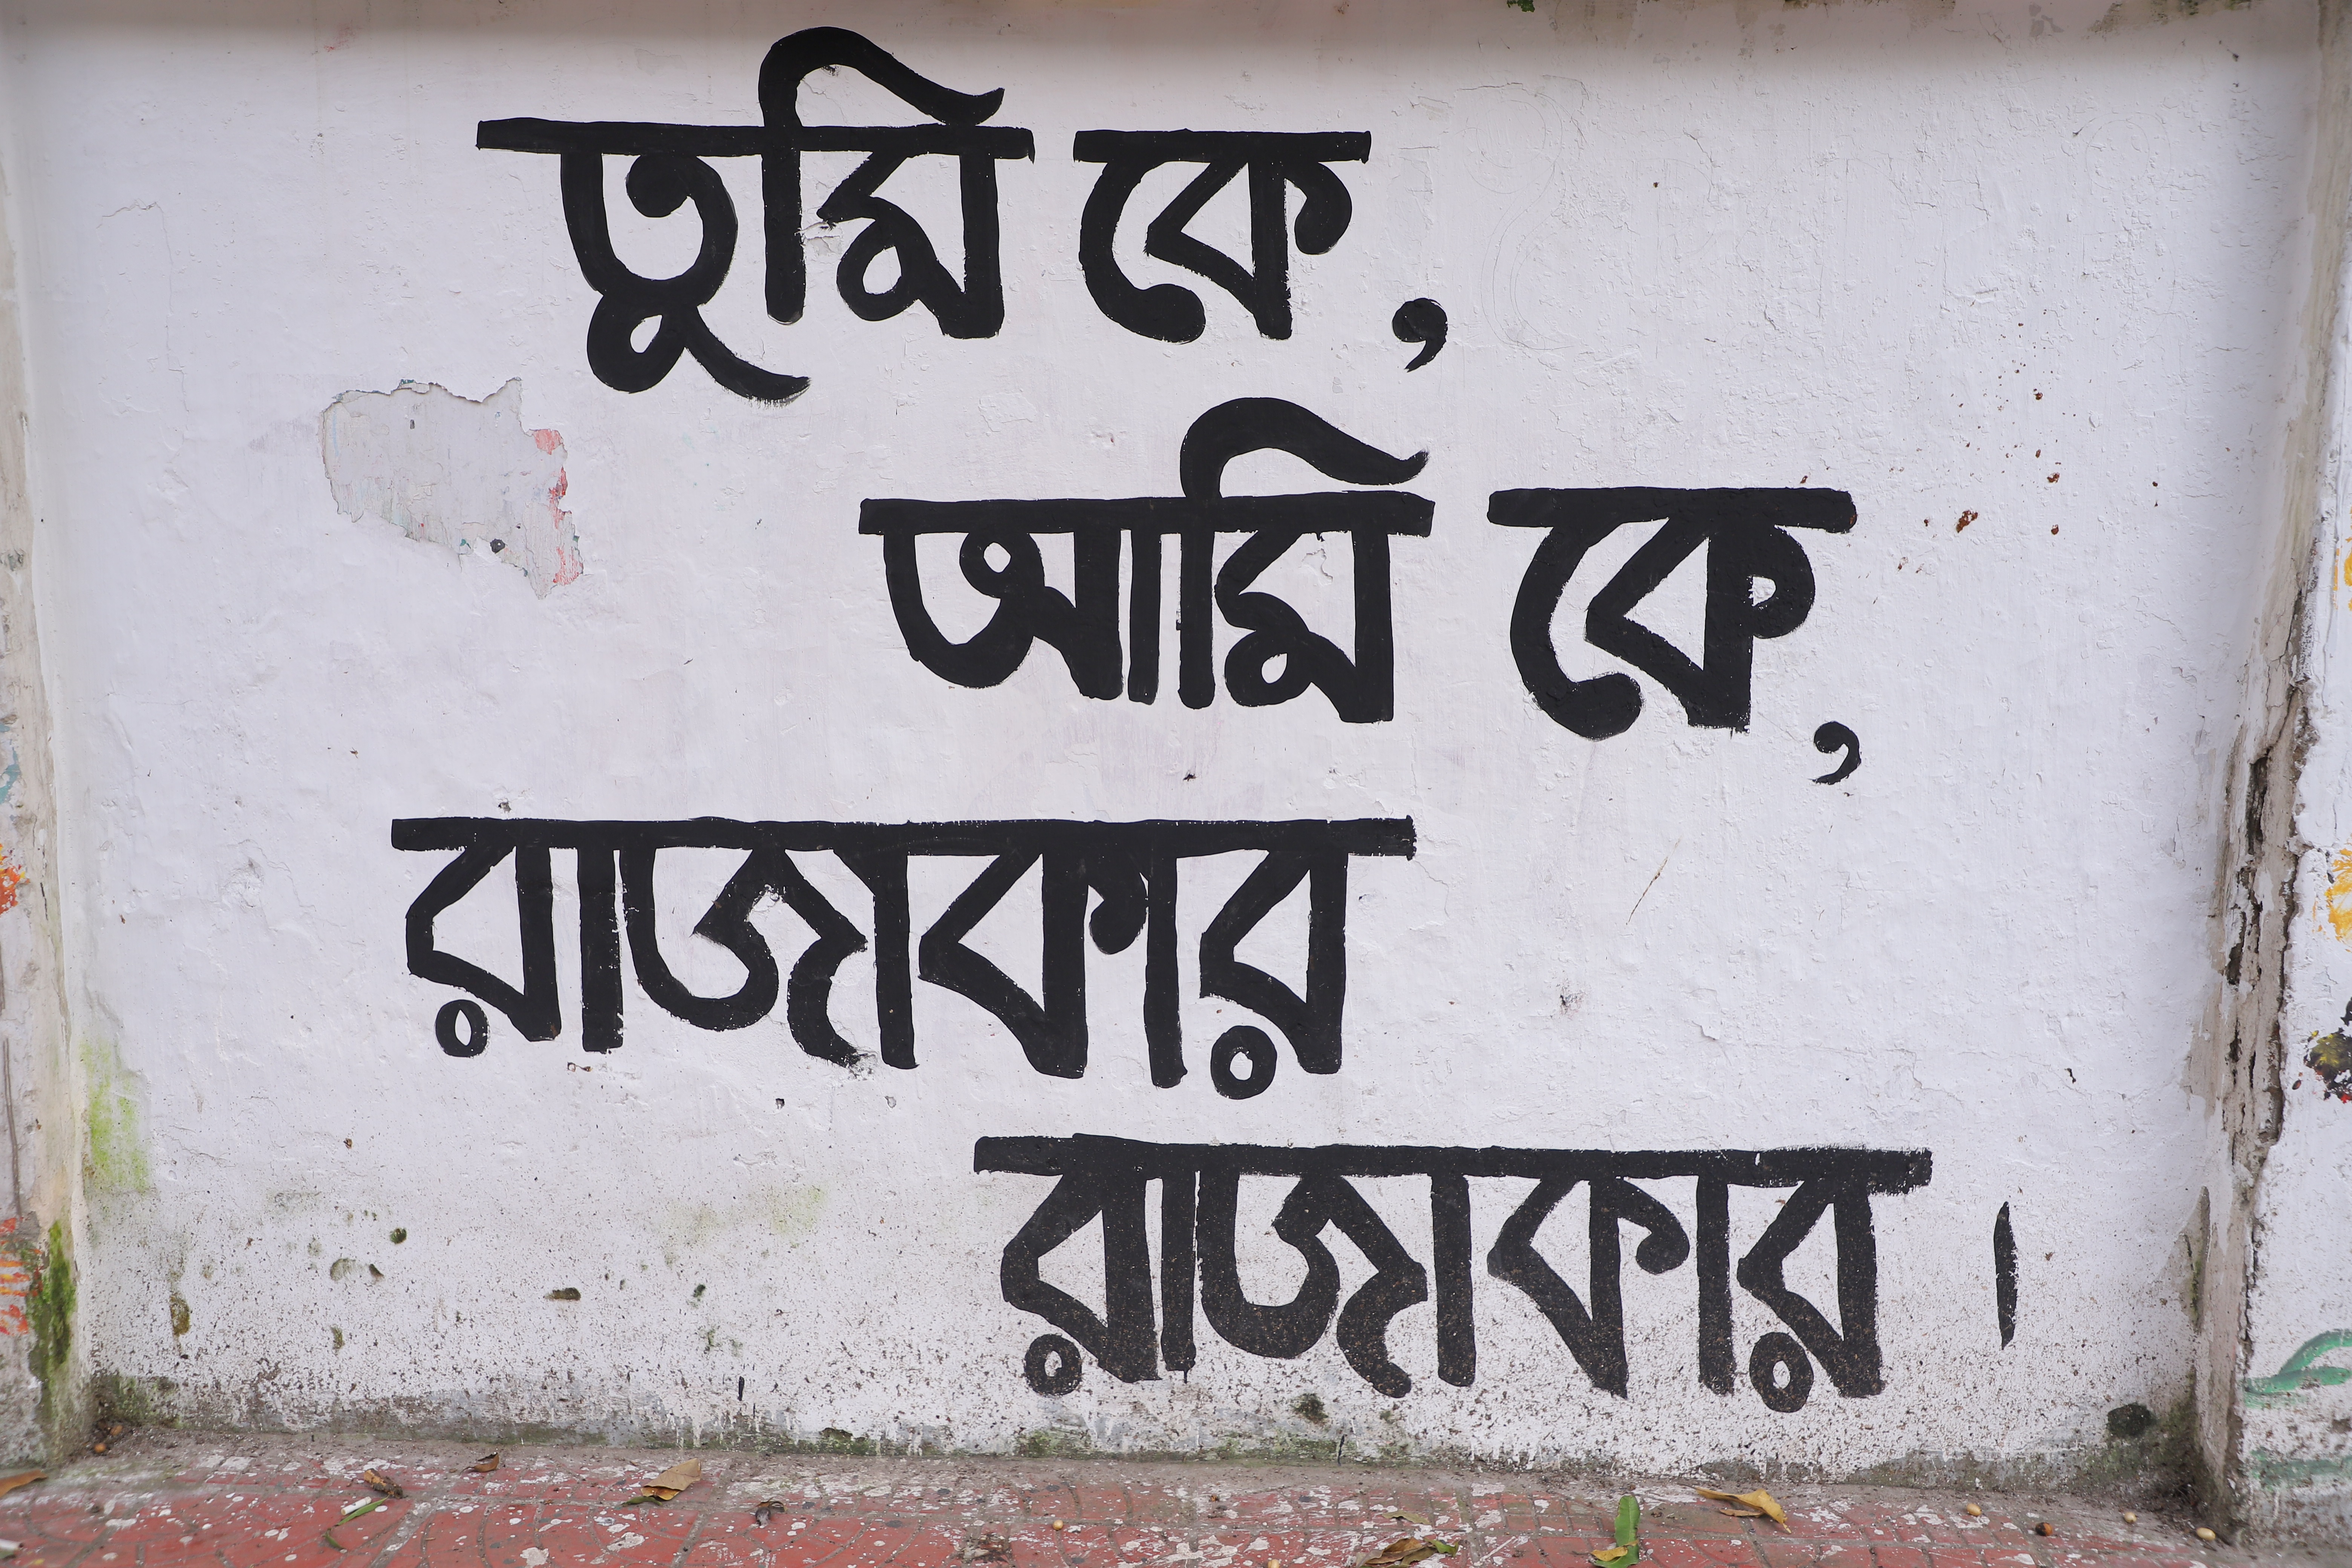 তুমি কে,
আমি কে,
রাজাকার
রাজাকার।